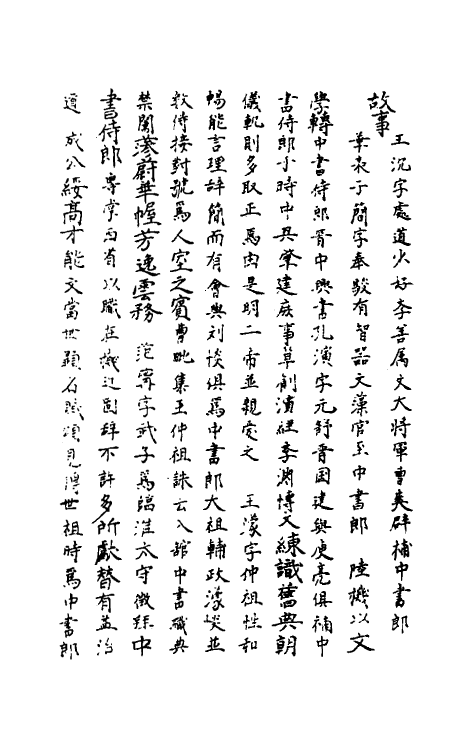 故事
王沉字處道少好李善属文大將軍曹爽辟補中書郎
華表子簡字奉駿有智器文藻官至中書郎 陸機以文
學轉中書侍郎晋中興書孔演字元舒晋國建與庾亮俱補中
書侍郎于時中興肇建庶事草創演経李淵博又練識舊典朝
儀軌則多取正焉由是明二帝並親愛之 王濛字仲祖性和
暢能言理辞簡而有會與刘惔俱爲中書郎大祖輔政濛惔並
欵侍接對號爲人室之賓曹毗集王仲祖誄云入舘中書職典
禁闈蓊蔚華幄芳逸雲務 范寗字武子爲臨淮太守徴拜中
書侍郎專掌西省以職在機近固辞不許多所獻替有益治
道 成公綏高才能文當世顯名賦頌見傳世祖時爲中書郎